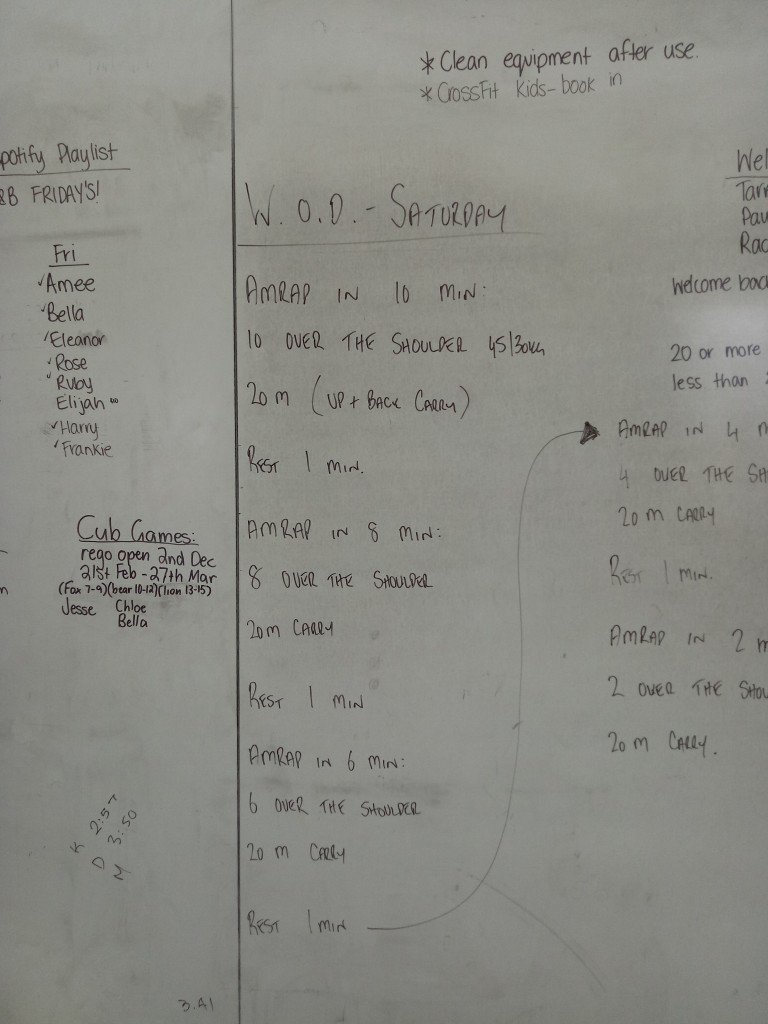 * Clean equipment after use.
* CrossFit Kids - book in
potify Playlist
&B FRIDAY'S!
Fri
✓Amee
✓Bella
✓Eleanor
✓Rose
✓Ruby
Elijah
✓Harry
✓Frankie
Cub Games:
rego open 2nd Dec
21st Feb - 27th Mar
(Fox 7-9)(bear 10-12)(lion 13-15)
Jesse Chloe
Bella
K 2:57
D 3:50
M
3.A1
W.O.D. - SATURDAY
AMRAP IN 10 MIN:
10 OVER THE SHOULDER 45/30KG
20 m (UP + BACK CARRY)
REST 1 MIN.
AMRAP IN 8 MIN:
8 OVER THE SHOULDER
20m CARRY
REST 1 MIN
AMRAP IN 6 MIN:
6 OVER THE SHOULDER
20 m CARRY
REST 1 MIN
Wel
Tarr
Pau
Rac
Welcome bac
20 or more
less than
AMRAP IN 4 m
4 OVER THE SH
20 m CARRY
REST 1 MIN.
AMRAP IN 2 m
2 OVER THE SHOU
20 m CARRY.